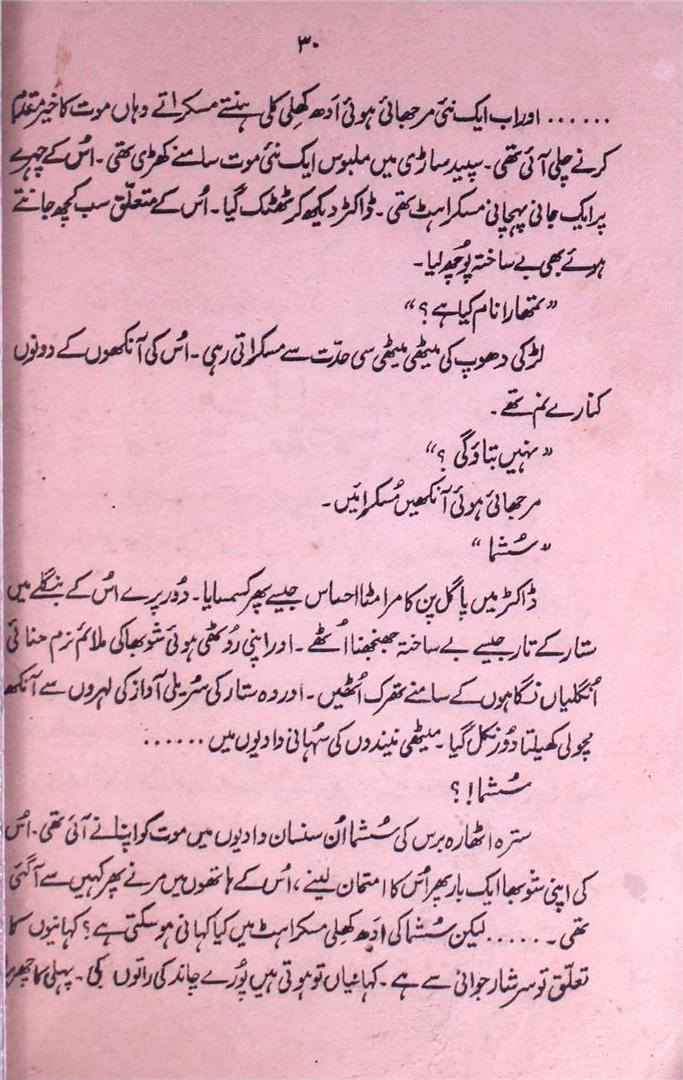 ۳۰
...... اور اب ایک نئی مرجھائی ہوئی اَدھ کھلی کلی ہنستے مسکراتے وہاں موت کا خیر مقدم
کرنے چلی آئی تھی۔ سپید ساڑی میں ملبوس ایک نئی موت سامنے کھڑی تھی۔ اُس کے چہرے
پر ایک جانی پہچانی مسکراہٹ تھی۔ ڈاکٹر دیکھ کر ٹھٹک گیا۔ اُس کے متعلّق سب کچھ جانتے
ہوئے بھی بے ساختہ پُوچھ لیا۔
”تمھارا نام کیا ہے؟“
لڑکی دھوپ کی میٹھی میٹھی سی حدّت سے مسکراتی رہی۔ اُس کی آنکھوں کے دونوں
کنارے نم تھے۔
”نہیں بتاؤ گی؟“
مرجھائی ہوئی آنکھیں مُسکرائیں۔
”سُشما“
ڈاکٹر میں پاگل پن کا مرا مٹا احساس جیسے پھر کسمسایا۔ دُور پرے اُس کے بنگلے میں
ستار کے تار جیسے بے ساختہ جھنجھنا اُٹھے۔ اور اپنی رُوٹھی ہوئی شوبھا کی ملائم نرم حنائی
اُنگلیاں نگاہوں کے سامنے تھرک اُٹھیں۔ اور وہ ستار کی سُریلی آواز کی لہروں سے آنکھ
مچولی کھیلتا دُور نکل گیا۔ میٹھی نیندوں کی سُہانی وادیوں میں ......
سُشما!؟
سترہ اٹھارہ برس کی سُشما اُن سنسان وادیوں میں موت کو اپنانے آئی تھی۔ اُس
کی اپنی شوبھا ایک بار پھر اُس کا امتحان لینے، اُس کے ہاتھوں میں مرنے پھر کہیں سے آگئی
تھی۔ ...... لیکن سُشما کی اَدھ کھلی مسکراہٹ میں کیا کہانی ہو سکتی ہے؟ کہانیوں کا
تعلّق تو سرشار جوانی سے ہے۔ کہانیاں تو ہوتی ہیں پُورے چاند کی راتوں کی۔ پہلی کا